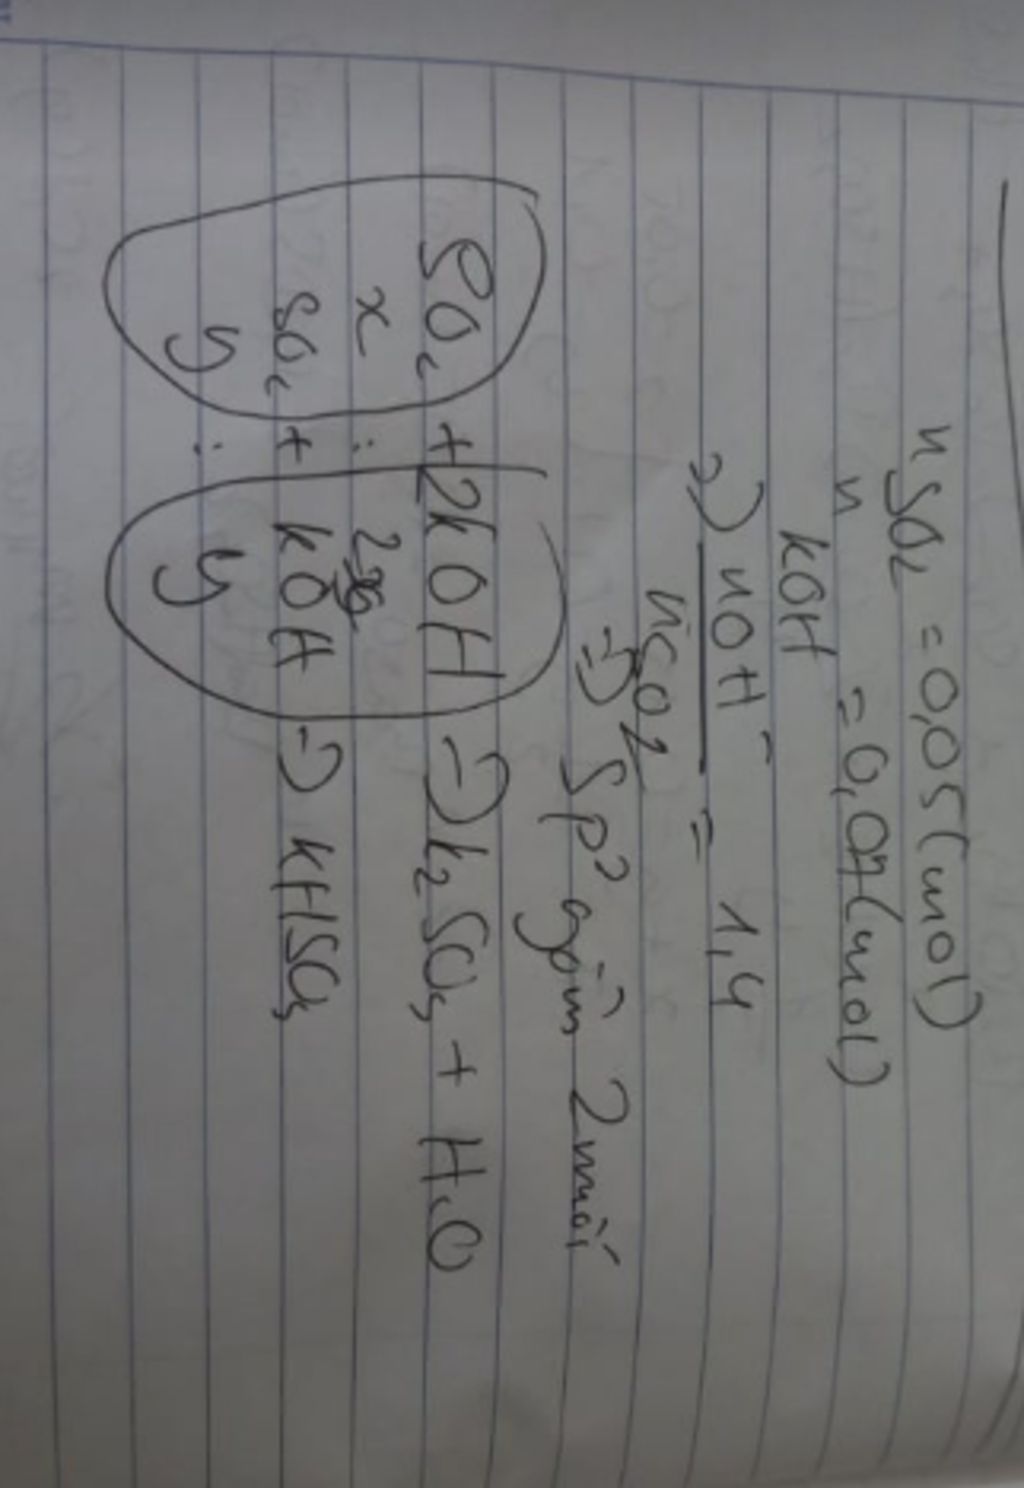 nSO2 = 0,05(mol)
n KOH = 0,07(mol)
=) nOH⁻ / nSO2 = 1,4
=) Sp² gồm 2 muối
SO2 + 2KOH =) K2SO3 + H2O
x : 2x
SO2 + KOH =) KHSO3
y : y